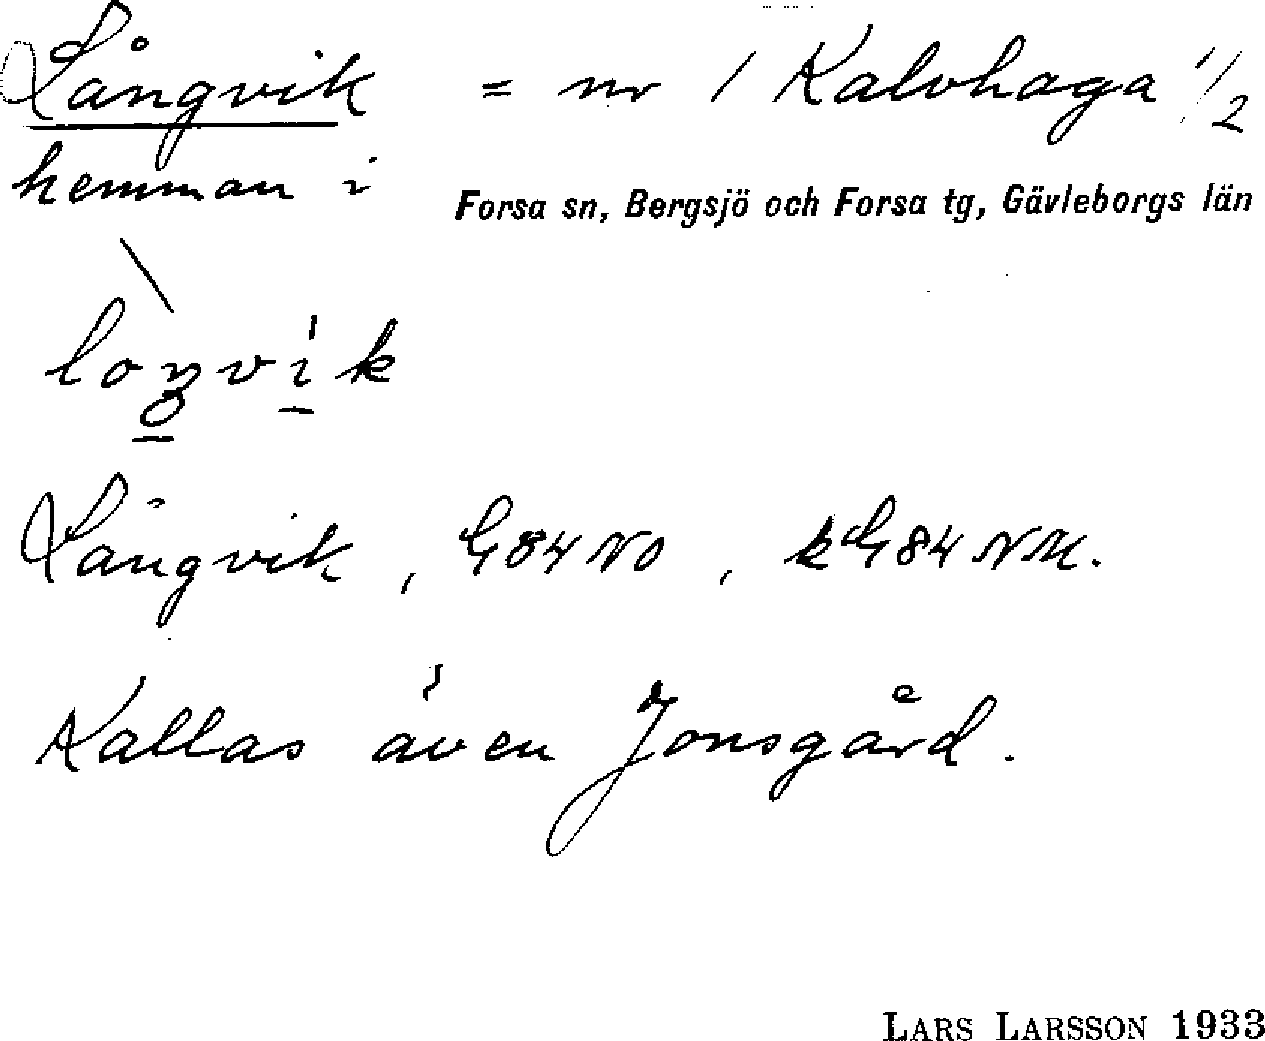 Långvik = nr 1 Kalvhaga 1/2
hemman i Forsa sn, Bergsjö och Forsa tg, Gävleborgs län
Långvik, G84NO, kG84NM.
Kallas även Jonsgård.
LARS LARSSON 1933